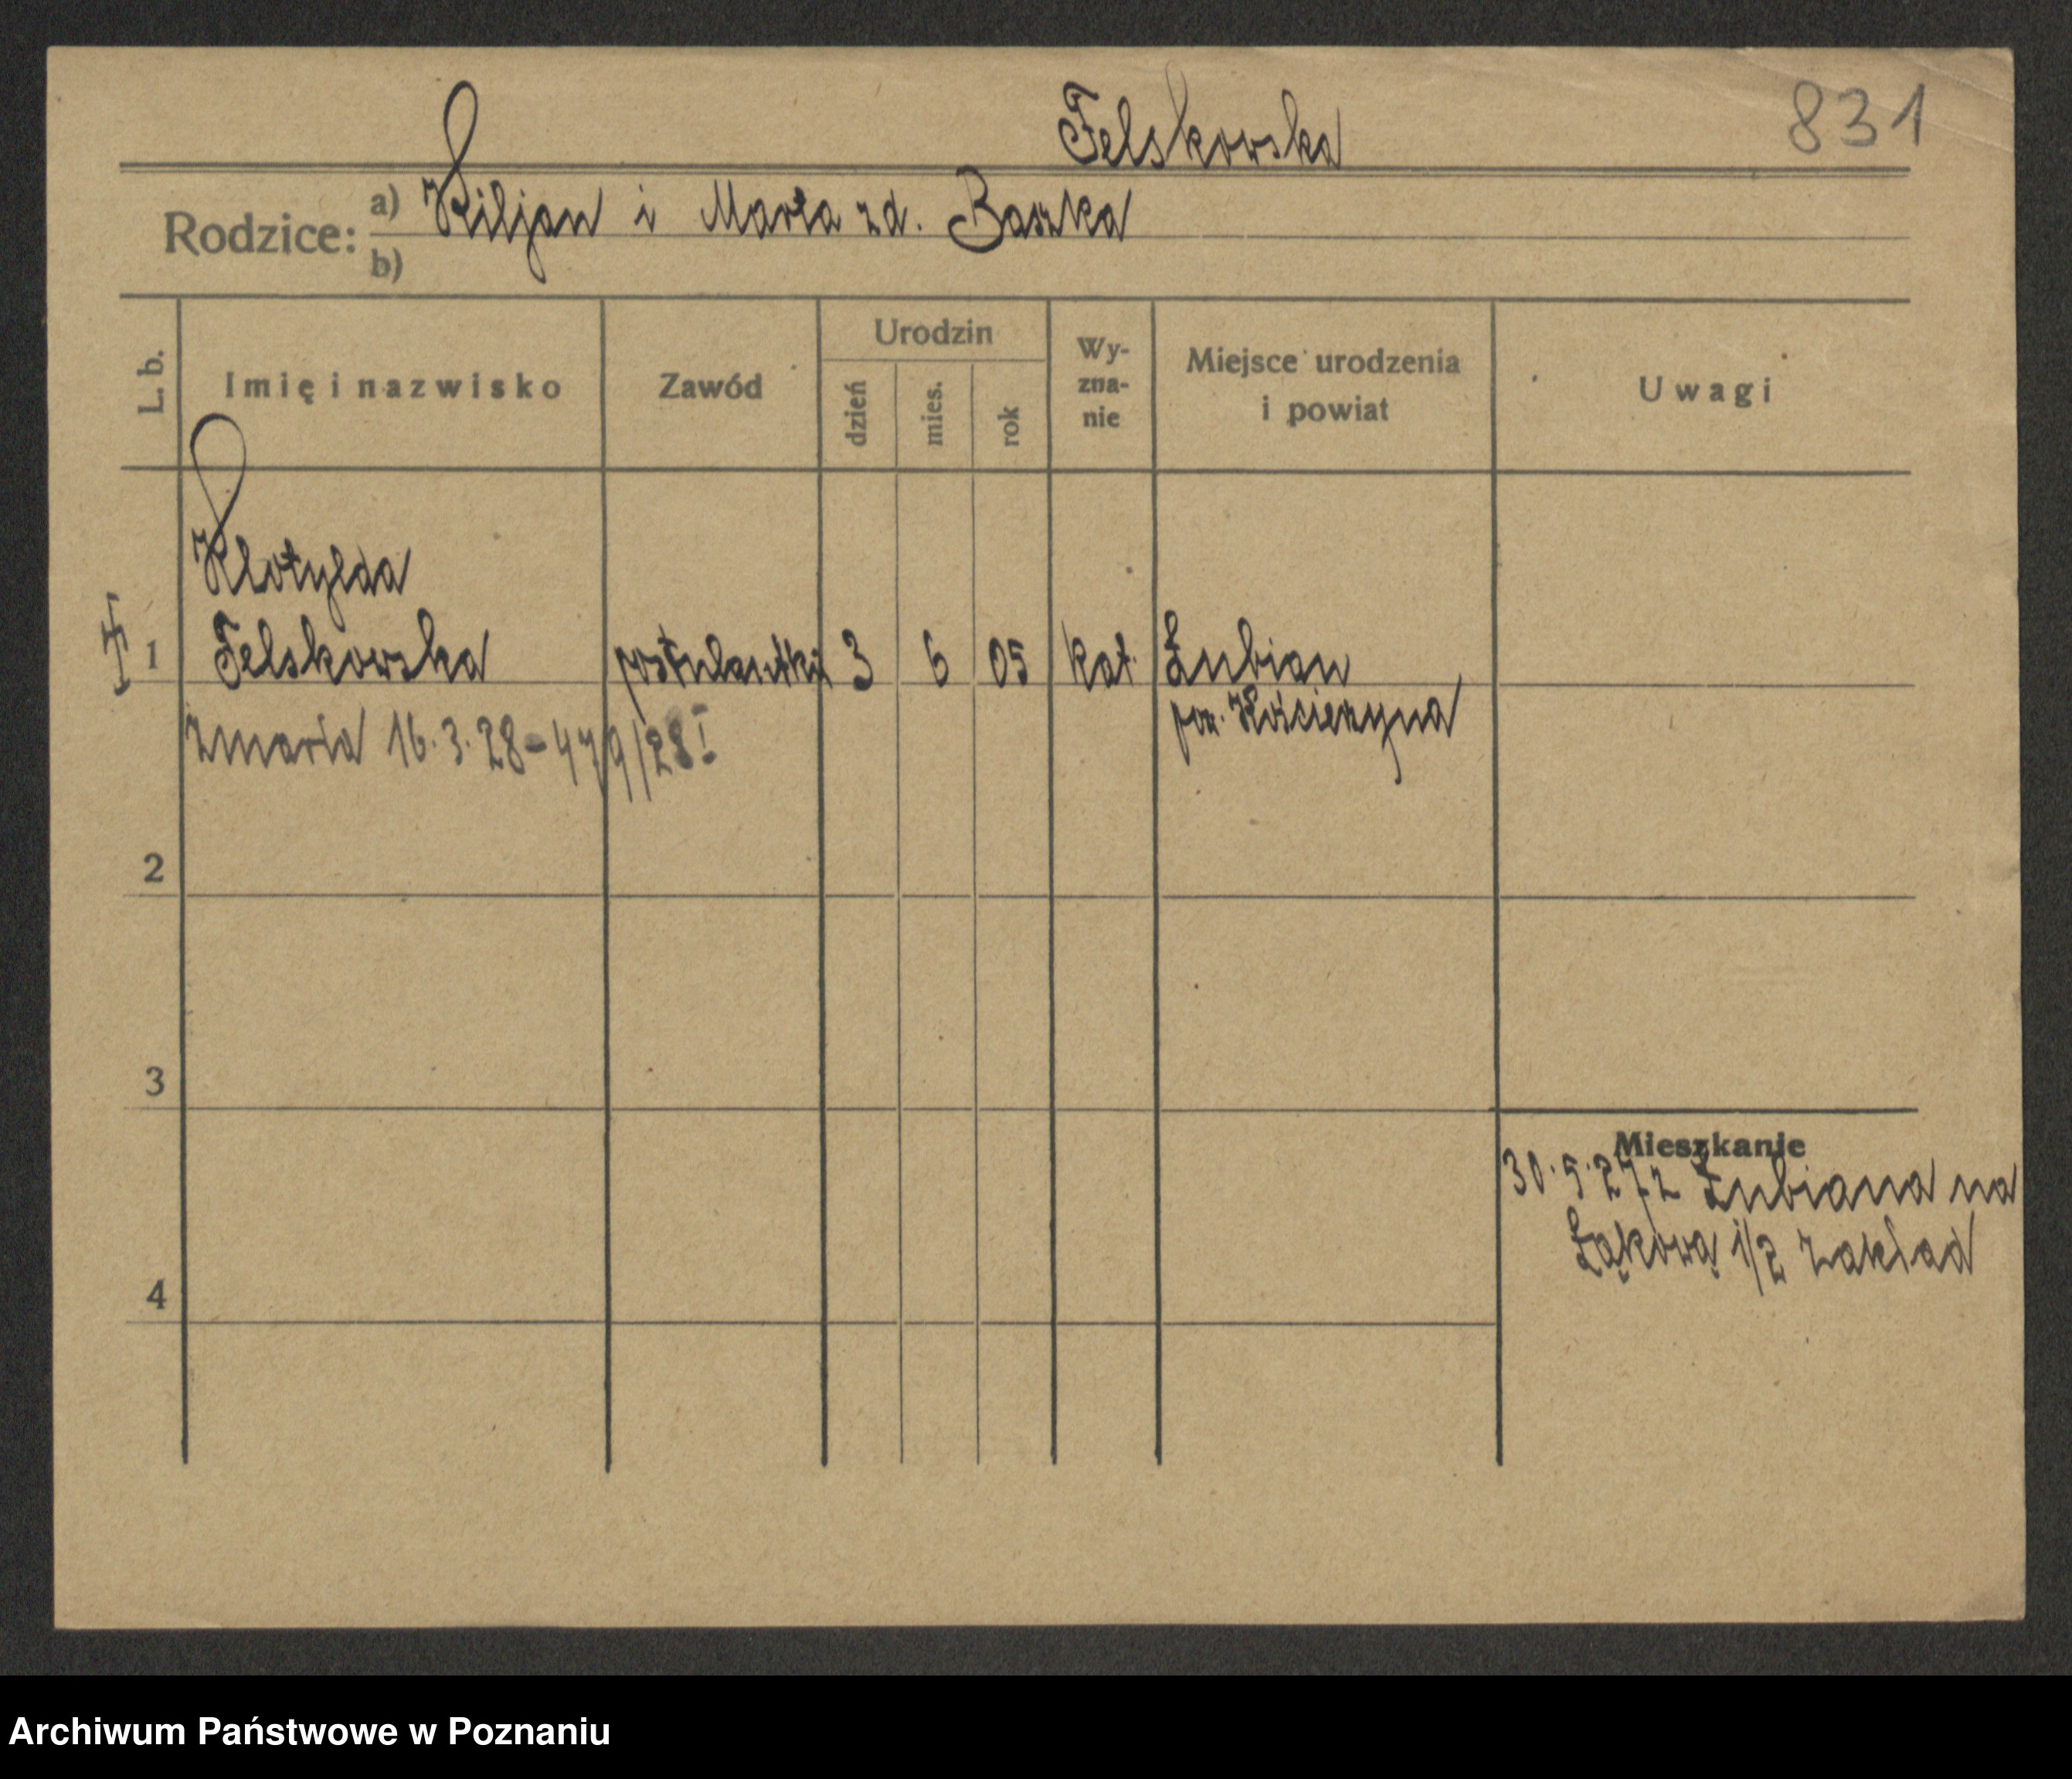 Felskowska 831
Rodzice: a) Kiljan i Marta zd. Baszka
b)
L. b. Imię i nazwisko Zawód Urodzin dzień mies. rok Wy-zna-nie Miejsce urodzenia i powiat Uwagi
Klotylda
1 Felskowska postulantka 3 6 05 kat. Łubian
pow. Kościerzyna
zmarła 16.3.28 - 479/28 I
2
3
Mieszkanie
30.5.27 z Łubiana na
Łąkową 1/2 zakład
4
Archiwum Państwowe w Poznaniu